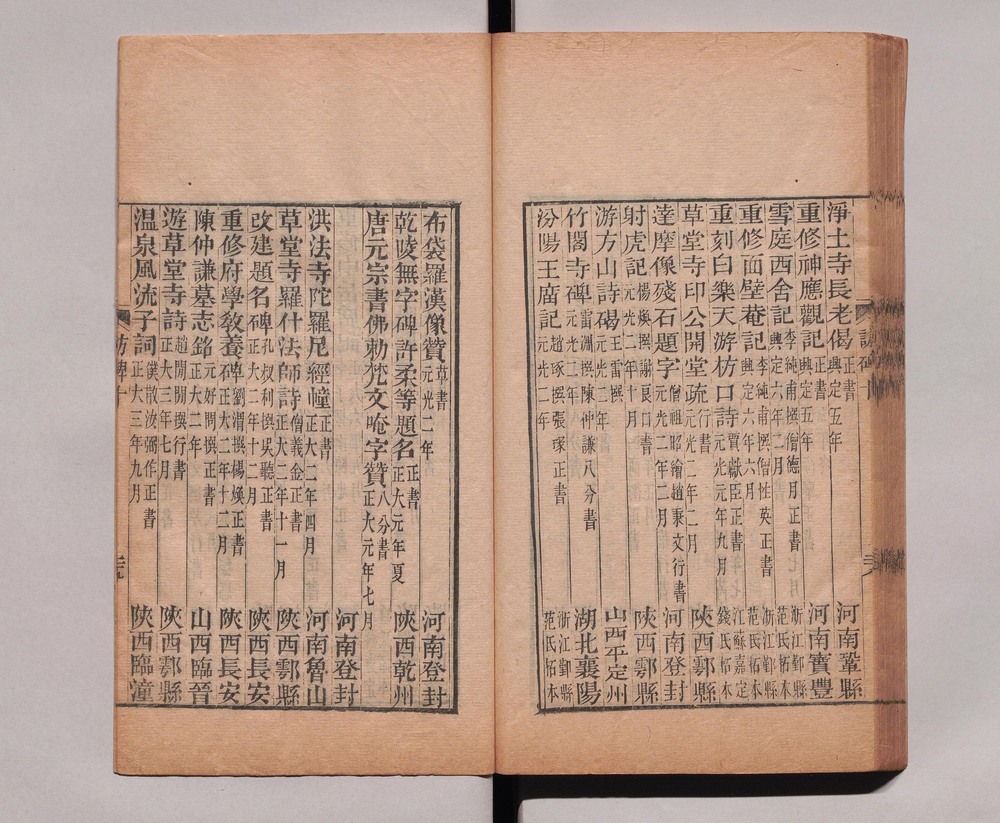 淨土寺長老偈 正書 興定五年 河南鞏縣
重修神應觀記 正書 興定五年 河南寶豐
雪庭西舍記 李純甫撰僧德月正書 興定六年二月 浙江鄞縣范氏拓本
重修面壁菴記 李純甫撰僧性英正書 興定六年六月 浙江鄞縣范氏拓本
重刻白樂天游枋口詩 賈獻臣正書 元光元年九月 江蘇嘉定錢氏拓本
草堂寺印公開堂疏 行書 元光二年二月 陝西鄠縣
達摩像殘石題字 僧祖昭繪趙秉文行書 元光二年二月 河南登封
射虎記 楊煥撰謝良口書 元光二年十月 陝西鄠縣
游方山詩碣 王雷撰 元光二年 山西平定州
竹閣寺碑 雷淵撰陳仲謙八分書 元光二年 湖北襄陽
汾陽王廟記 趙琢撰張琢正書 元光二年 浙江鄞縣范氏拓本
布袋羅漢像贊 草書 元光二年 河南登封
乾陵無字碑許柔等題名 正書 正大元年夏 陝西乾州
唐元宗書佛勅梵文唵字贊 八分書 正大元年七月 河南登封
洪法寺陀羅尼經幢 正書 正大二年四月 河南魯山
草堂寺羅什法師詩 僧義金正書 正大二年十一月 陝西鄠縣
改建題名碑 孔叔利撰吳聽正書 正大二年十二月 陝西長安
重修府學教養碑 劉渭撰楊煥正書 正大二年十二月 陝西長安
陳仲謙墓志銘 元好問撰正書 正大二年 山西臨晉
遊草堂寺詩 趙閒閒撰行書 正大三年七月 陝西鄠縣
温泉風流子詞 僕散汝弼作正書 正大三年九月 陝西臨潼